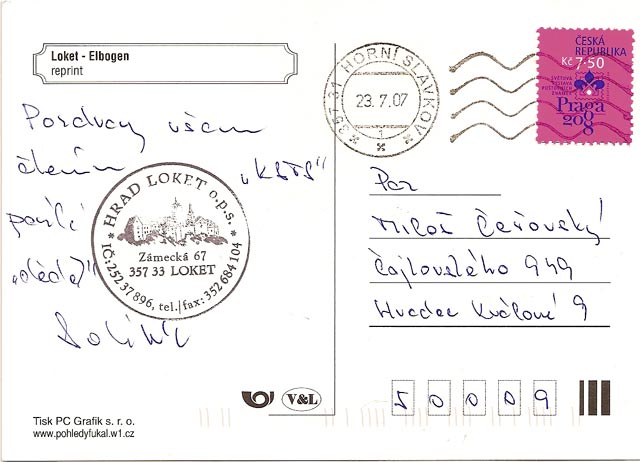 Loket - Elbogen
reprint
Pozdravy všem
členům
"KSTS"
posílá
"děda"
HRAD LOKET o.p.s.
Zámecká 67
357 33 LOKET
IČ:25237896, tel./fax:352 684 104
357 31 HORNÍ SLAVKOV
23.7.07
1
ČESKÁ
REPUBLIKA
Kč 7·50
SVĚTOVÁ
VÝSTAVA
POŠTOVNÍCH
ZNÁMEK
Praga
2008
Pan
Miloš Čeřovský
Čajkovského 949
Hradec Králové 9
50009
V&L
Tisk PC Grafik s. r. o.
www.pohledyfukal.w1.cz